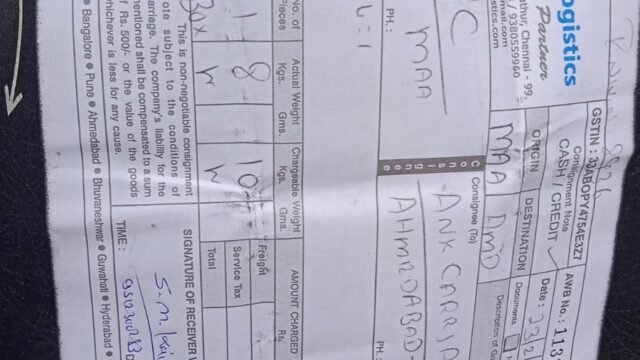 ogistics
Partner
athur, Chennai - 99.
/ 9380559960
mail.com
stics.com
GSTIN : 33ABOPY4754E3Z7
Consignment Note
CASH / CREDIT
AWB No. : 113
ORIGIN
DESTINATION
Date : 23/2
MAA
AMD
Documents
PH. :
C
MAA
Consignee (To)
ANK CARRIA
AHMEDABAD
PH. :
No. of
Pieces
Actual Weight
Kgs.
Gms.
Chargeable Weight
Kgs.
Gms.
AMOUNT CHARGED
Rs.
1
8
10
Freight
Service Tax
Total
Box
This is non-negotiable consignment
ote subject to the conditions of
arriage. The company's liability for the
mentioned shall be compensated to a sum
f Rs. 500/- or the value of the goods
whichever is less for any cause.
SIGNATURE OF RECEIVER
TIME :
Bangalore ● Pune ● Ahmedabad ● Bhuvaneshwar ● Guwahati ● Hyderabad ●